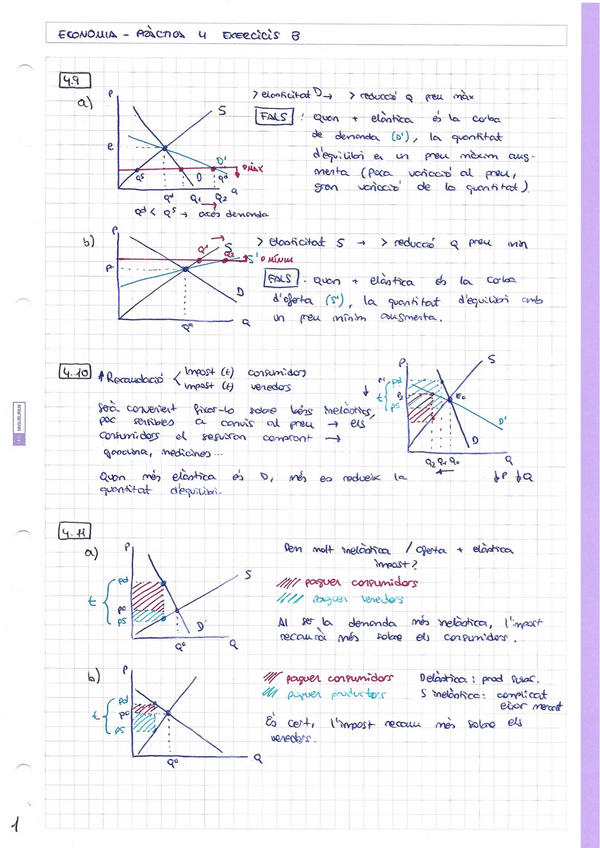 ECONOMIA - PRÀCTICA 4 EXERCICIS B
4.9
a)
P
S
e
D'
P MÀX
Qs
D
Qd
Q
Qd Q1 Q2
Qd < Qs → accés demanda
> elasticitat D → > reducció Q preu màx
FALS : Quan + elàstica és la corba
de demanda (D'), la quantitat
d'equilibri en un preu màxim aug-
menta (Poca variació al preu,
gran variació de la quantitat).
b)
P
S
S' P MÍNIM
P
D
Q
> elasticitat S → > reducció Q preu min
FALS . Quan + elàstica és la corba
d'oferta (S'), la quantitat d'equilibri amb
un preu mínim augmenta.
4.10
↑ Recaudació < impost (t) consumidors
impost (t) venedors
Serà convenient fixar-lo sobre béns inelàstics,
poc sensibles a canvis al preu → els
consumidors el seguiran comprant →
gasolina, medicines...
Quan més elàstica és D, més es redueix la
quantitat d'equilibri.
P
S
t
pd
ps
e0
D'
D
Q2 Q1 Q0
Q
↓P ↓Q
4.11
a)
P
S
t
pd
po
ps
D
Q0
Q
Dem molt inelàstica / oferta + elàstica
impost?
paguen consumidors
paguen venedors
Al ser la demanda més inelàstica, l'impost
recaurà més sobre els consumidors.
b)
P
t
pd
po
ps
Q0
Q
paguen consumidors
paguen productors
D elàstica: prod subs.
S inelàstica: complicat
eixir mercat
És cert, l'impost recau més sobre els
venedors.
1